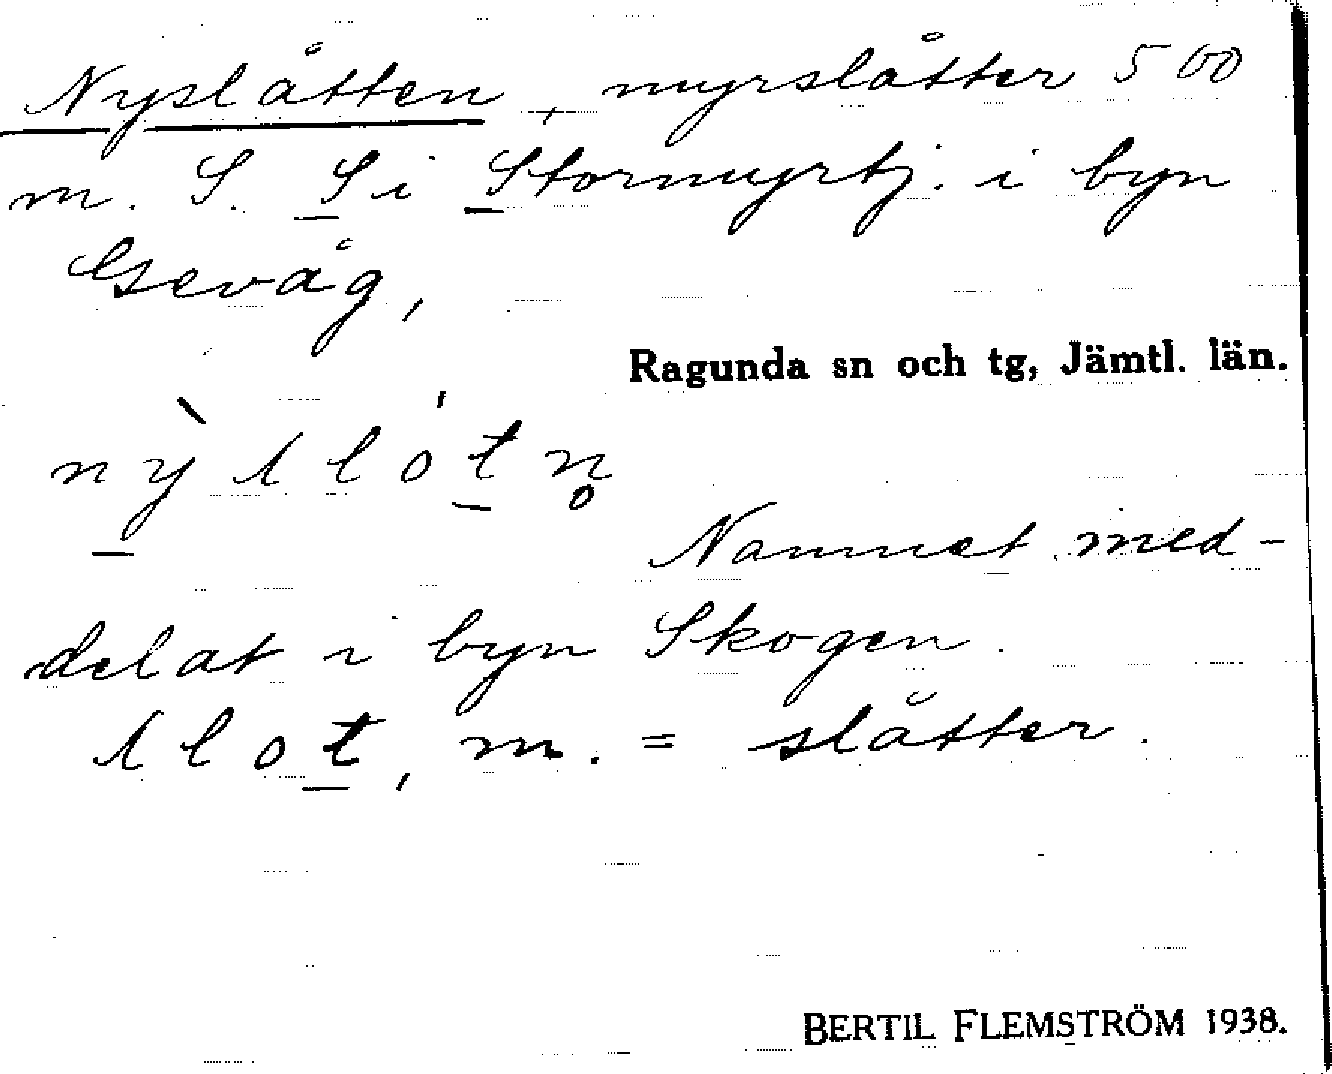 Nyslåtten, myrslåtter 500
m. S. S i Stormyrtj. i byn
Gevåg,
Ragunda sn och tg, Jämtl. län.
nỳslótn̥
Namnet med-
delat i byn Skogen.
slot, m. = slåtter.
BERTIL FLEMSTRÖM 1938.